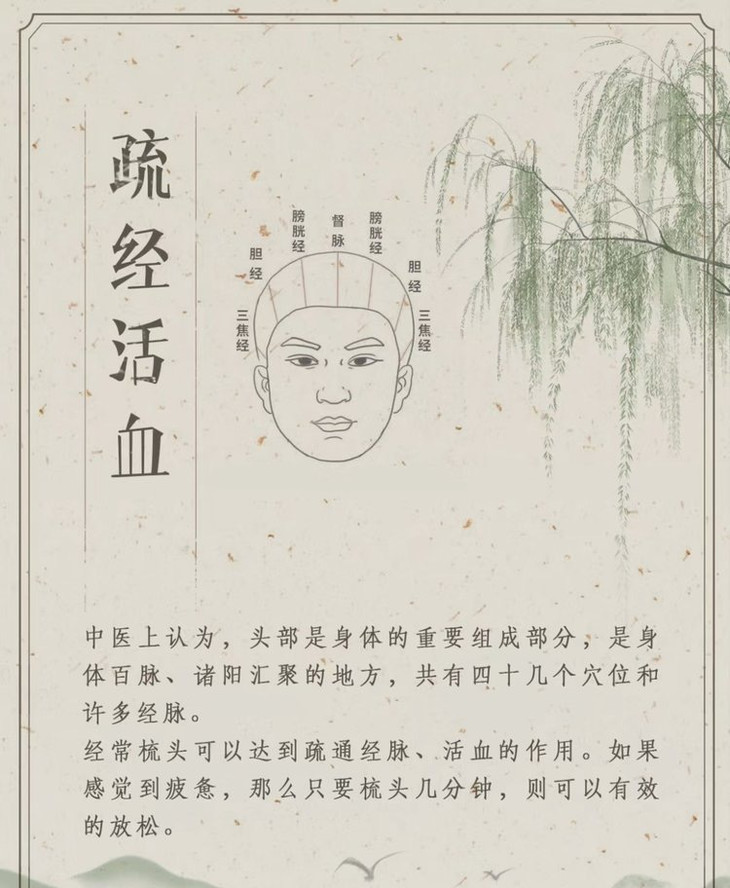 疏经活血
督脉
膀胱经
膀胱经
胆经
胆经
三焦经
三焦经
中医上认为，头部是身体的重要组成部分，是身
体百脉、诸阳汇聚的地方，共有四十几个穴位和
许多经脉。
经常梳头可以达到疏通经脉、活血的作用。如果
感觉到疲惫，那么只要梳头几分钟，则可以有效
的放松。